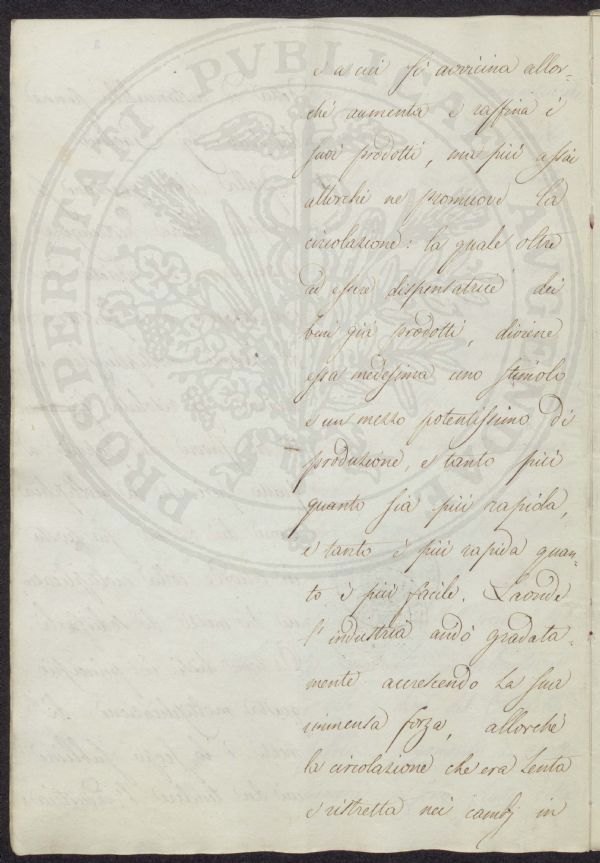 e a cui si avvicina allor-
chè aumenta e raffina i
suoi prodotti, ma più assai
allorchè ne promuove la
circolazione: la quale oltre
ad essere dispensatrice dei
beni già prodotti, diviene
essa medesima uno stimolo
e un mezzo potentissimo di
produzione, e tanto più
quanto sia più rapida,
e tanto è più rapida quan-
to è più facile. Laonde
l'industria andò gradata-
mente accrescendo la sua
immensa forza, allorchè
la circolazione che era lenta
e ristretta nei cambj in
PROSPERITATI PVBLICAE AVGENDAE